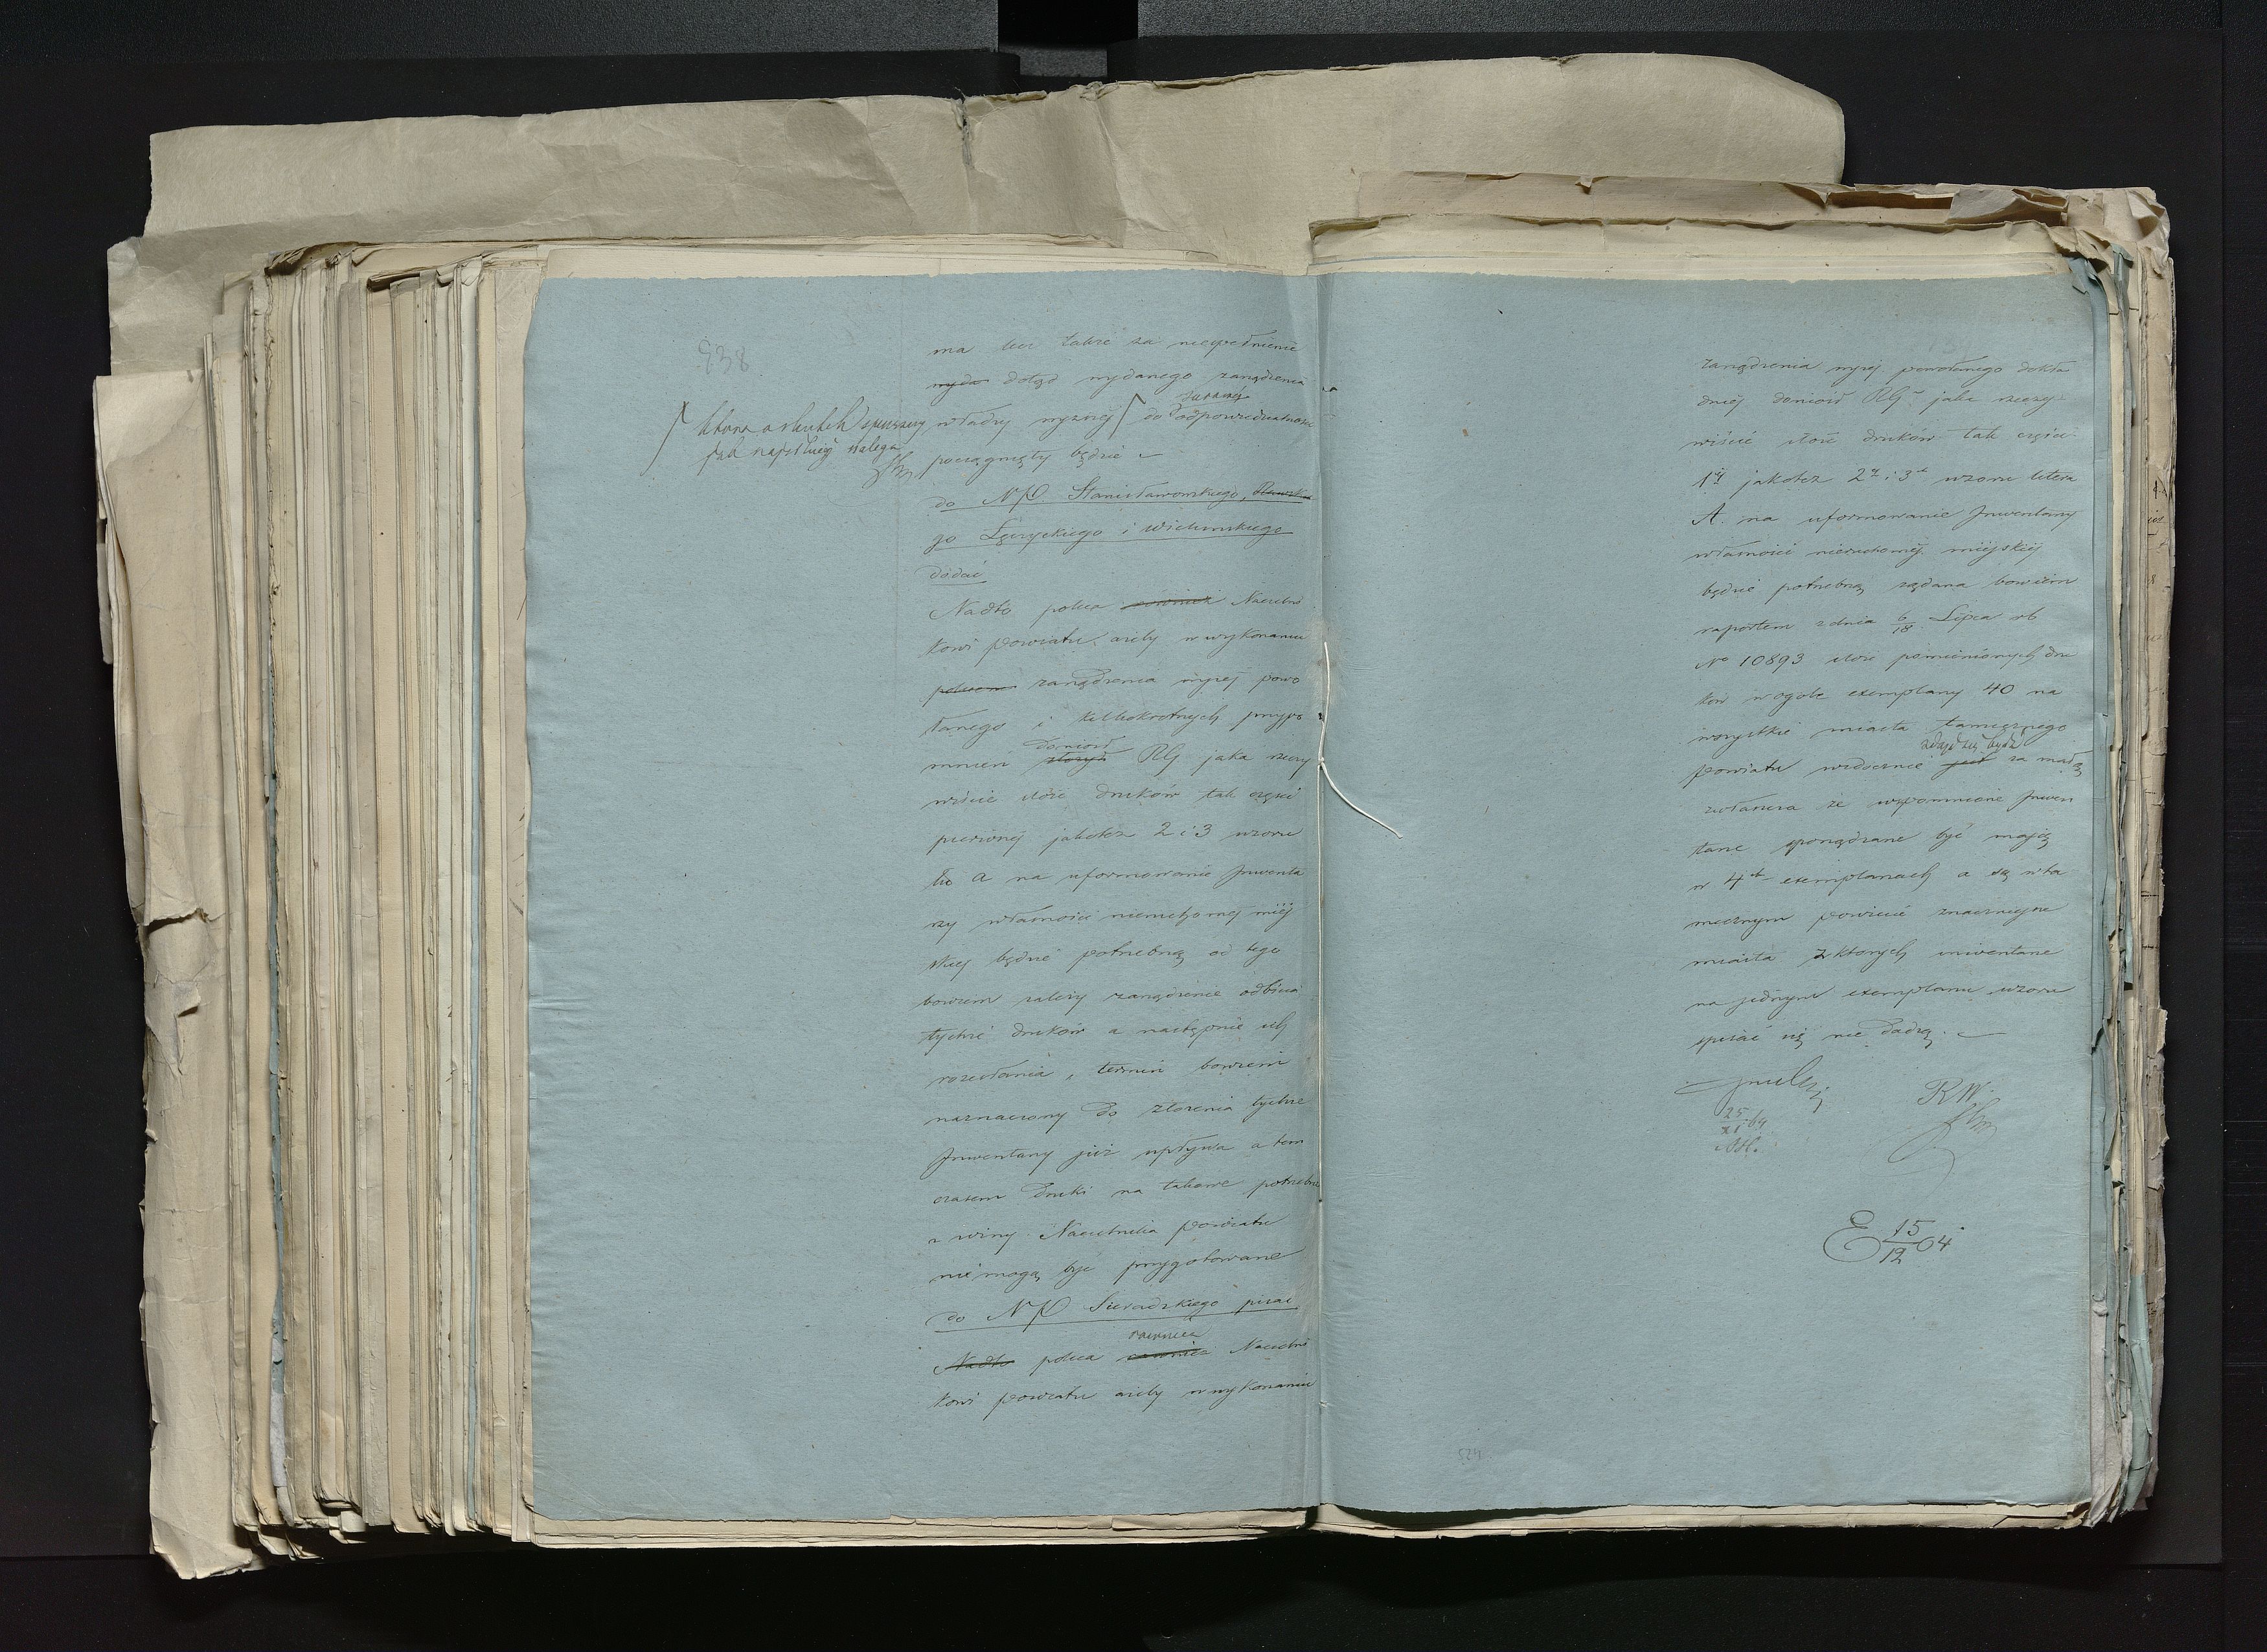 938
ma lecz także za niespełnienie
wyda dotąd wydanego zarządzenia
władzy wyższej do surowej odpowiedzialności
która o skutek spieszny
jak najsilniej nalega
pociągnięty będzie
do NP Stanisławowskiego, Rawskie
go Łęczyckiego i Wieluńskiego
dodać
Nadto poleca również Naczelni
kowi powiatu ażeby w wykonaniu
polecen zarządzenia wyżej powo
łanego i kilkokrotnych przypo
mnień złożył doniosł RG jaka rzeczy
wiście ilość druków tak części
pierwszej jakoteż 2 i 3 wzoru
lit a na uformowanie Inwenta
rzy własności nieruchomej miej
skiej będzie potrzebną od tego
bowiem zależy zarządzenie odbicia
tychże druków a następnie ich
rozesłania, termin bowiem
naznaczony do złożenia tychże
Inwentarzy już upływa a tem
czasem druki na takowe potrzebne
z winy Naczelnika powiatu
nie mogą być przygotowane
do NP Sieradzkiego pisać
Nadto poleca również również Naczelni
kowi powiatu ażeby w wykonaniu
zarządzenia wyżej powołanego dokła
dniej doniosł RG jaka rzeczy
wiście ilość druków tak części
1ej jakoteż 2ej i 3ej wzoru litera
A. na uformowanie Inwentarzy
własności nieruchomej miejskiej
będzie potrzebną żądana bowiem
raportem z dnia 6/18 Lipca rb
No 10893 ilość pomienionych dru
ków w ogóle exemplarzy 40 na
wszystkie miasta tamecznego
powiatu widocznie jest zdaje się być za małą
zwłaszcza że wspomnione Inwen
tarze sporządzane być mają
w 4ch exemplarzach a są w ta
mecznym powiecie znaczniejsze
miasta z ktorych inwentarze
na jednym exemplarzu wzoru
spisać się nie dadzą.
RW.
25/XI 64
E 15/12 64
524